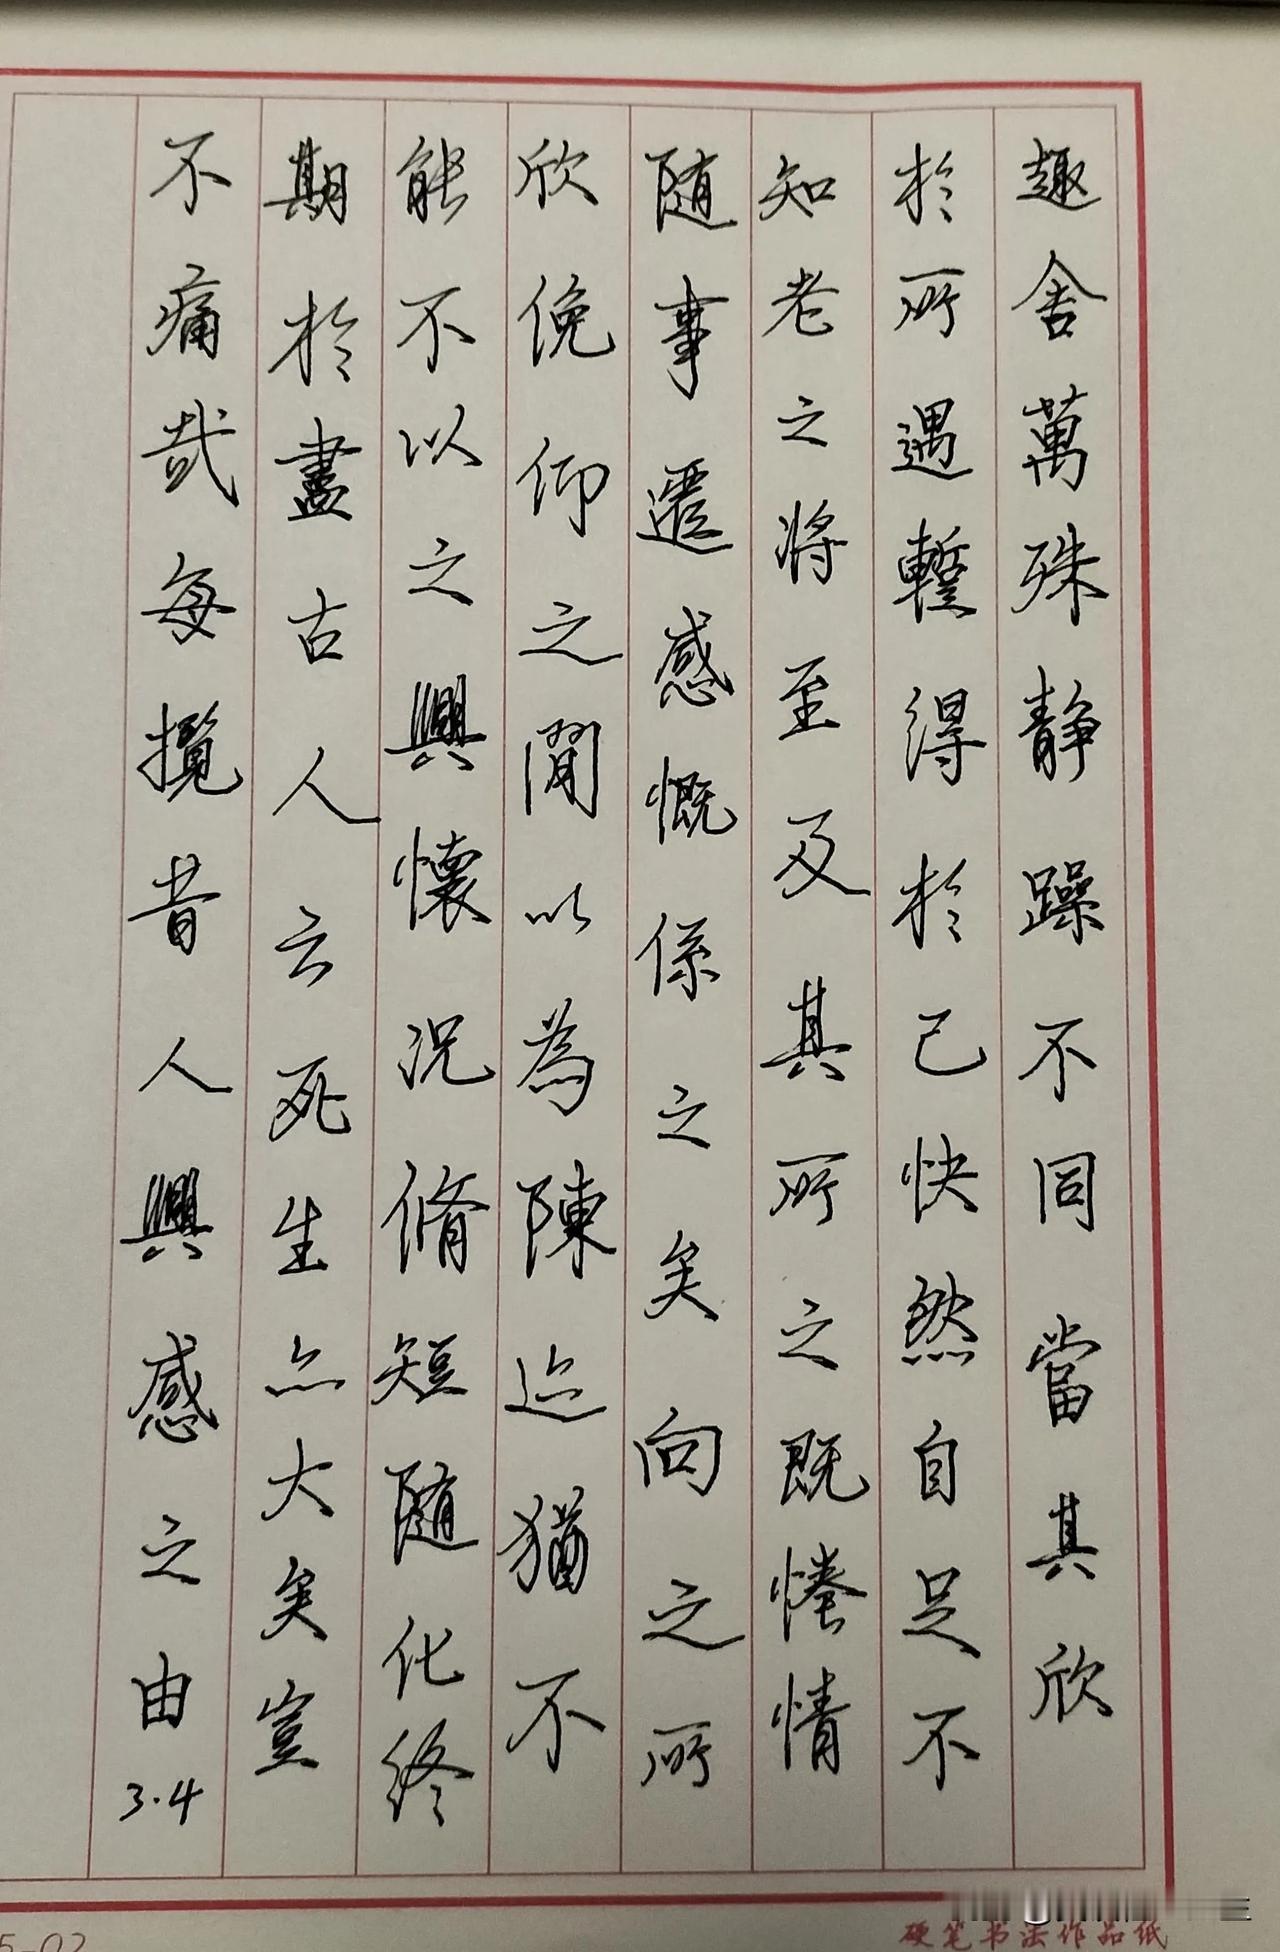 趣舍萬殊静躁不同當其欣
於所遇蹔得於己快然自足不
知老之将至及其所之既惓情
随事遷感慨係之矣向之所
欣俛仰之閒以為陳迹猶不
能不以之興懷況脩短随化終
期於盡古人云死生亦大矣豈
不痛哉每攬昔人興感之由
3.4
硬笔书法作品纸
5-02